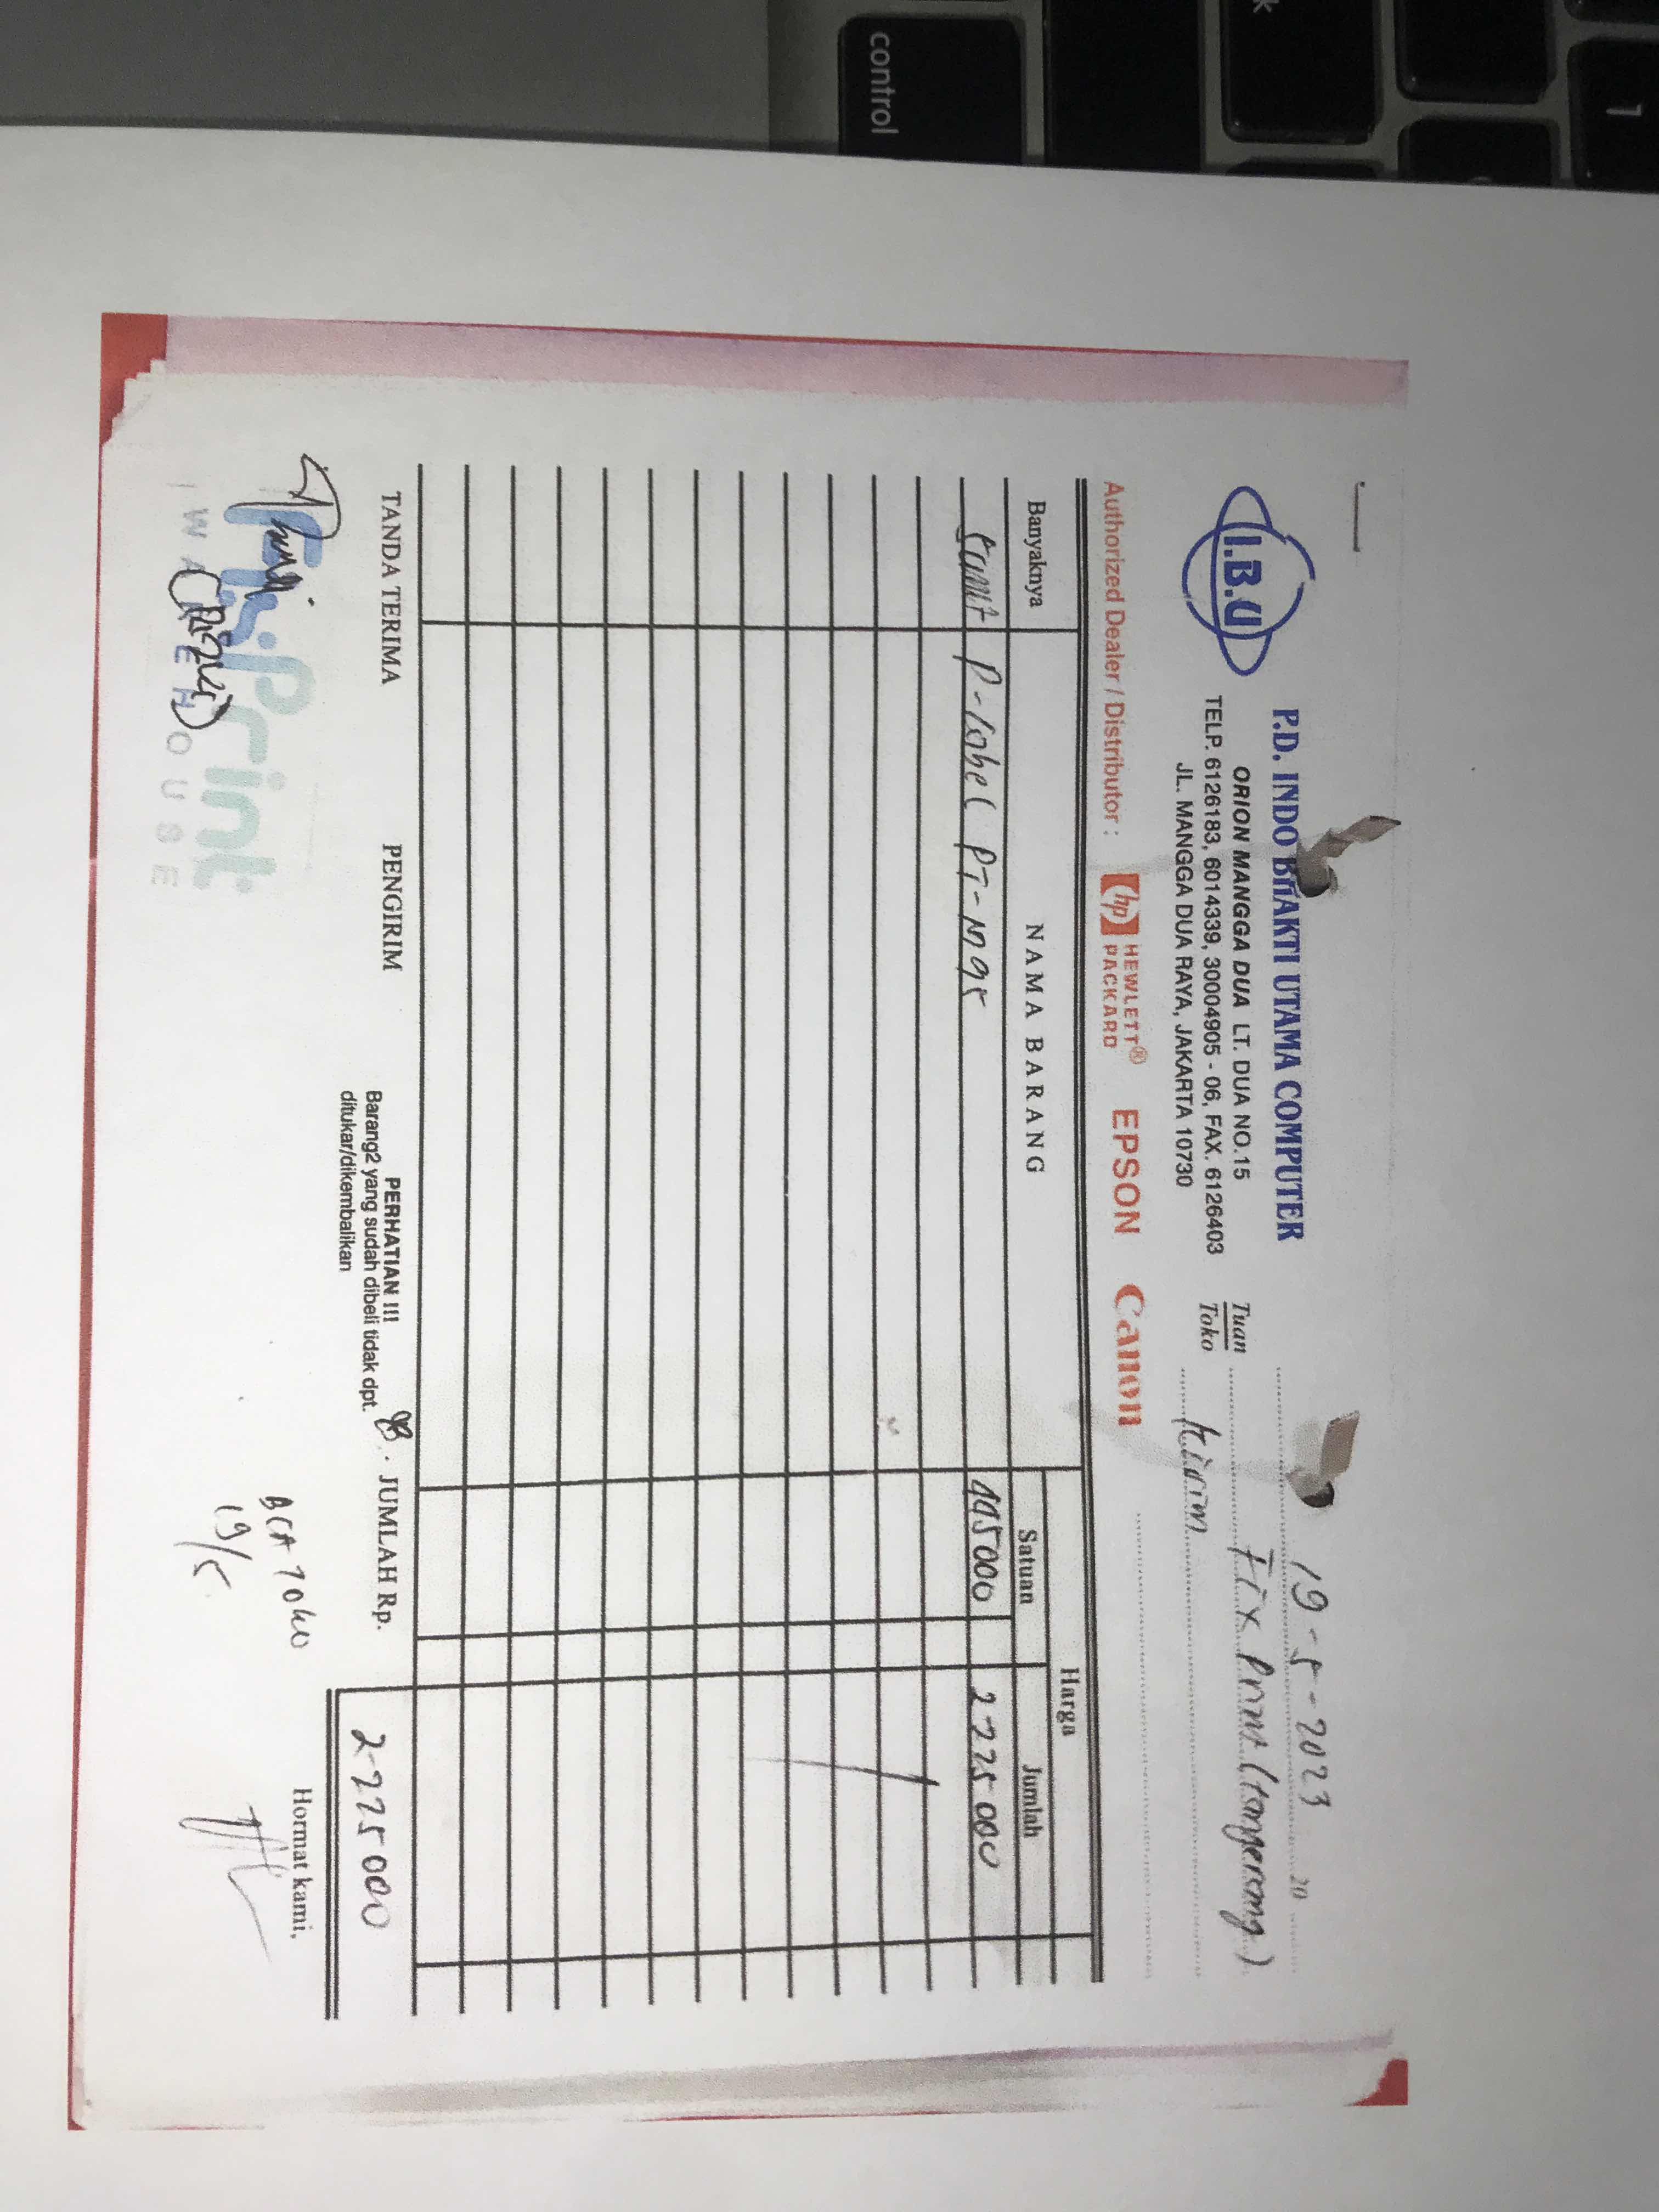 control
k
1
19-5-2023 20
I.B.U
P.D. INDO BHAKTI UTAMA COMPUTER
ORION MANGGA DUA LT. DUA NO.15
TELP. 6126183, 6014339, 30004905 - 06, FAX. 6126403
JL. MANGGA DUA RAYA, JAKARTA 10730
Tuan
Toko
Fix Print (tangerang)
kirim
Authorized Dealer / Distributor :
hp HEWLETT® PACKARD
EPSON
Canon
Banyaknya NAMA BARANG Harga
Satuan Jumlah
5 unit P-Label PT-M95 445000 2225000
TANDA TERIMA PENGIRIM
PERHATIAN !!!
Barang2 yang sudah dibeli tidak dpt.
ditukar/dikembalikan
JUMLAH Rp. 2225000
Hormat kami,
BCA Toko
19/5
Fix Print
WAREHOUSE
(Rizki)